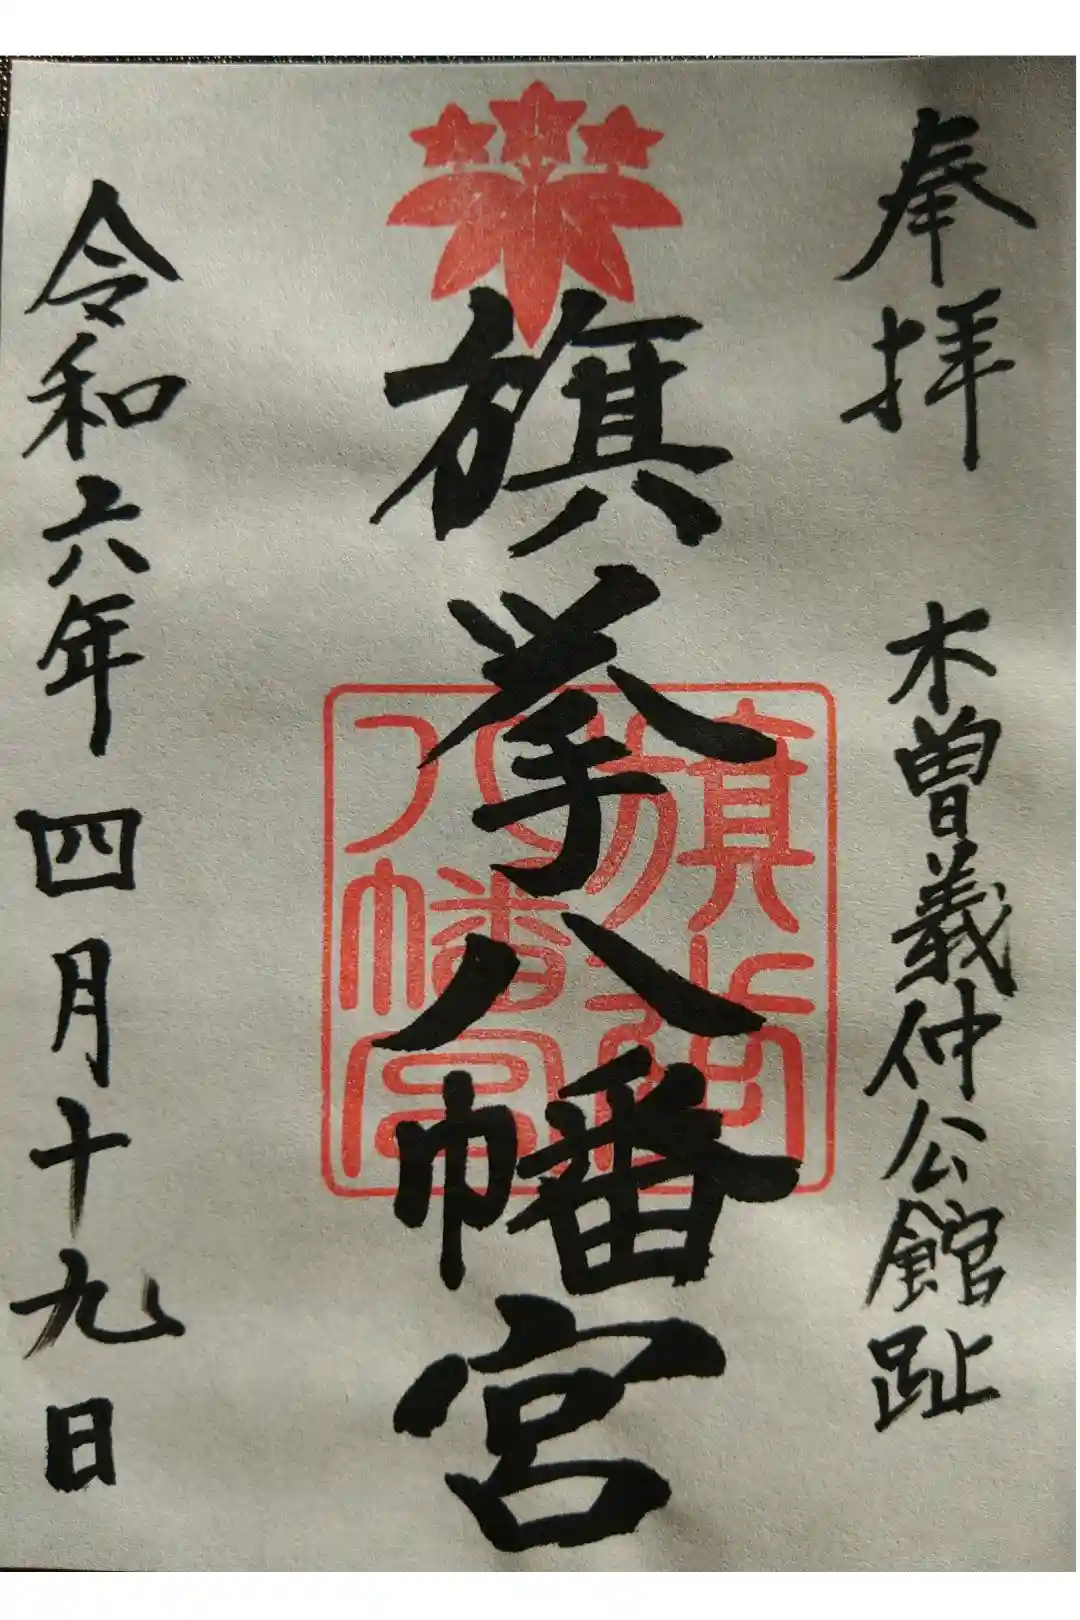 奉拝　木曽義仲公館趾
旗挙八幡宮
旗挙八幡宮
令和六年四月十九日